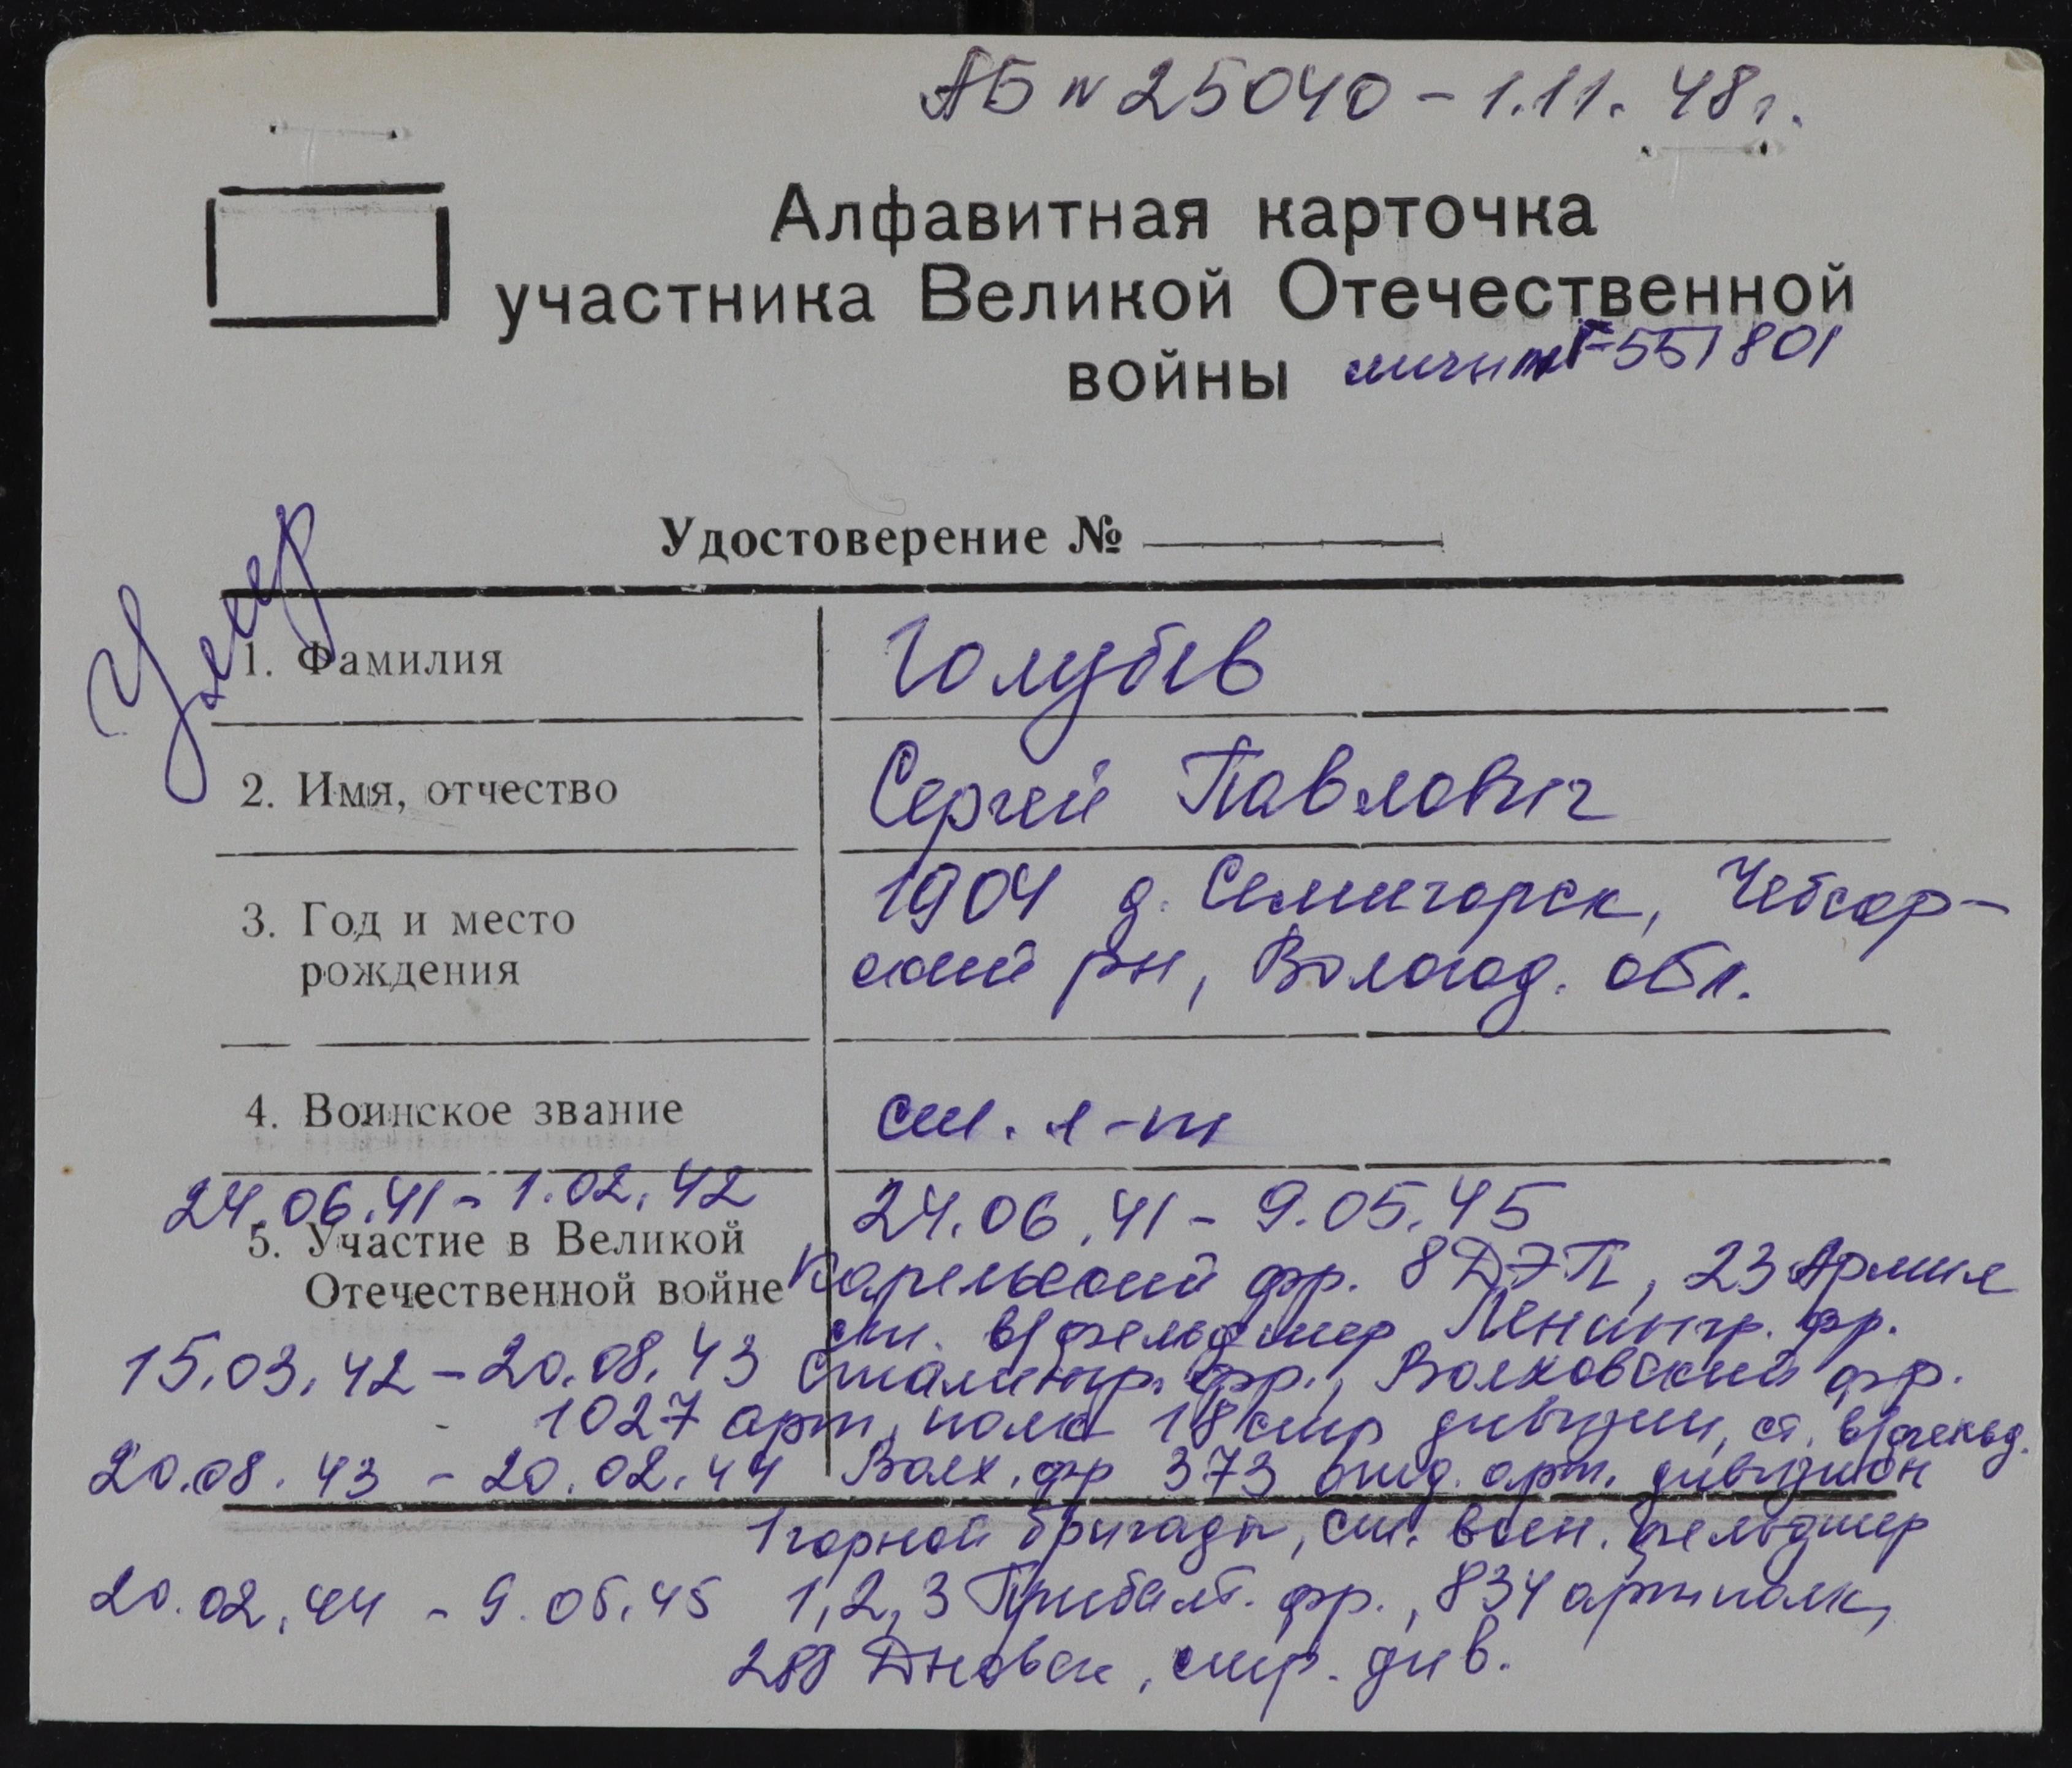 АБ № 25040 - 1.11. 48 г.
Алфавитная карточка
участника Великой Отечественной
войны Г-551801
Удостоверение №
Умер
1. Фамилия Голубев
2. Имя, отчество Сергей Павлович
3. Год и место рождения 1904 д. Семигорск, Чебсар-
ский рн, Вологод. обл.
4. Воинское звание ст. л-т
24.06.41 - 1.02.42 24.06.41 - 9.05.45
5. Участие в Великой
Отечественной войне Карельский фр. 8 ДЭП, 23 Армия
ст. в/фельдшер Ленингр. фр.
15.03.42 - 20.08.43 Сталингр. фр., Волховский фр.
1027 арт. полк 18 стр дивизии, ст. в/фельд.
20.08.43 - 20.02.44 Волх. фр 373 отд. арт. дивизион
1 горной бригады, ст. воен. фельдшер
20.02.44 - 9.05.45 1, 2, 3 Прибалт. фр., 834 артполк,
288 Дновск, стр. див.